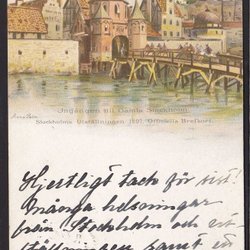 Ingången till Gamla Stockholm.
Stockholms Utställningen 1897. Officiella Brefkort.
Hjertligt tack för sist!
Många helsningar
från Stockholm och ut-
ställningen samt